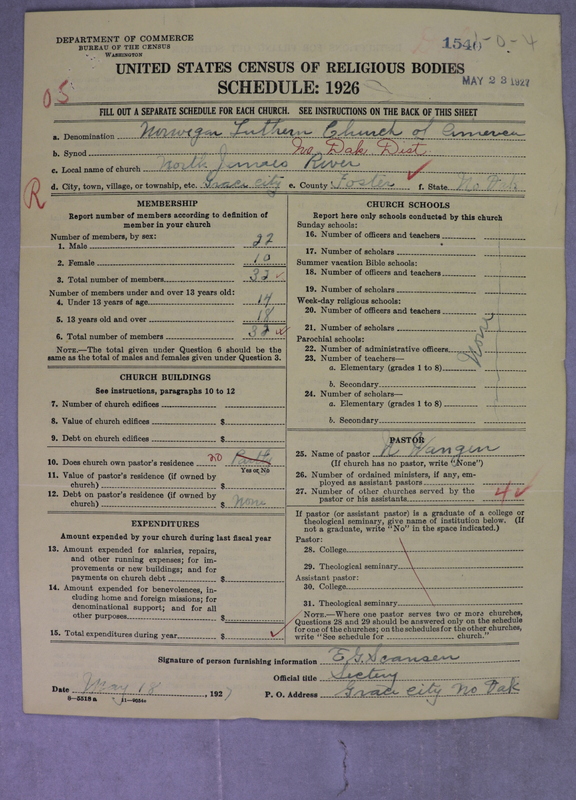 DEPARTMENT OF COMMERCE
BUREAU OF THE CENSUS
WASHINGTON
1540 1-0-4
MAY 23 1927
UNITED STATES CENSUS OF RELIGIOUS BODIES
SCHEDULE: 1926
05
FILL OUT A SEPARATE SCHEDULE FOR EACH CHURCH. SEE INSTRUCTIONS ON THE BACK OF THIS SHEET
a. Denomination Norwegan Luthern Church of America
b. Synod No. Dak Dist.
c. Local name of church North James River
R
d. City, town, village, or township, etc. Grace City e. County Foster f. State No Dak
MEMBERSHIP
Report number of members according to definition of
member in your church
Number of members, by sex:
1. Male 22
2. Female 10
3. Total number of members 32
Number of members under and over 13 years old:
4. Under 13 years of age 14
5. 13 years old and over 18
6. Total number of members 32
NOTE.—The total given under Question 6 should be the
same as the total of males and females given under Question 3.
CHURCH BUILDINGS
See instructions, paragraphs 10 to 12
7. Number of church edifices
8. Value of church edifices $
9. Debt on church edifices $
10. Does church own pastor's residence no
Yes or No
11. Value of pastor's residence (if owned by
church) $
12. Debt on pastor's residence (if owned by
church) $ None
EXPENDITURES
Amount expended by your church during last fiscal year
13. Amount expended for salaries, repairs,
and other running expenses; for im-
provements or new buildings; and for
payments on church debt $
14. Amount expended for benevolences, in-
cluding home and foreign missions; for
denominational support; and for all
other purposes $
15. Total expenditures during year $
CHURCH SCHOOLS
Report here only schools conducted by this church
Sunday schools:
16. Number of officers and teachers
17. Number of scholars
Summer vacation Bible schools:
18. Number of officers and teachers
19. Number of scholars
Week-day religious schools:
20. Number of officers and teachers
21. Number of scholars
Parochial schools:
22. Number of administrative officers
23. Number of teachers—
a. Elementary (grades 1 to 8)
b. Secondary
24. Number of scholars—
a. Elementary (grades 1 to 8)
b. Secondary
None
PASTOR
25. Name of pastor N Wangen
(If church has no pastor, write "None")
26. Number of ordained ministers, if any, em-
ployed as assistant pastors
27. Number of other churches served by the
pastor or his assistants 4
If pastor (or assistant pastor) is a graduate of a college or
theological seminary, give name of institution below. (If
not a graduate, write "No" in the space indicated.)
Pastor:
28. College
29. Theological seminary
Assistant pastor:
30. College
31. Theological seminary
NOTE.—Where one pastor serves two or more churches,
Questions 28 and 29 should be answered only on the schedule
for one of the churches; on the schedules for the other churches,
write "See schedule for church."
Signature of person furnishing information E. G. Svansen
Official title Sectery
Date May 18, 1927 P. O. Address Grace City No Dak
8—5518 a